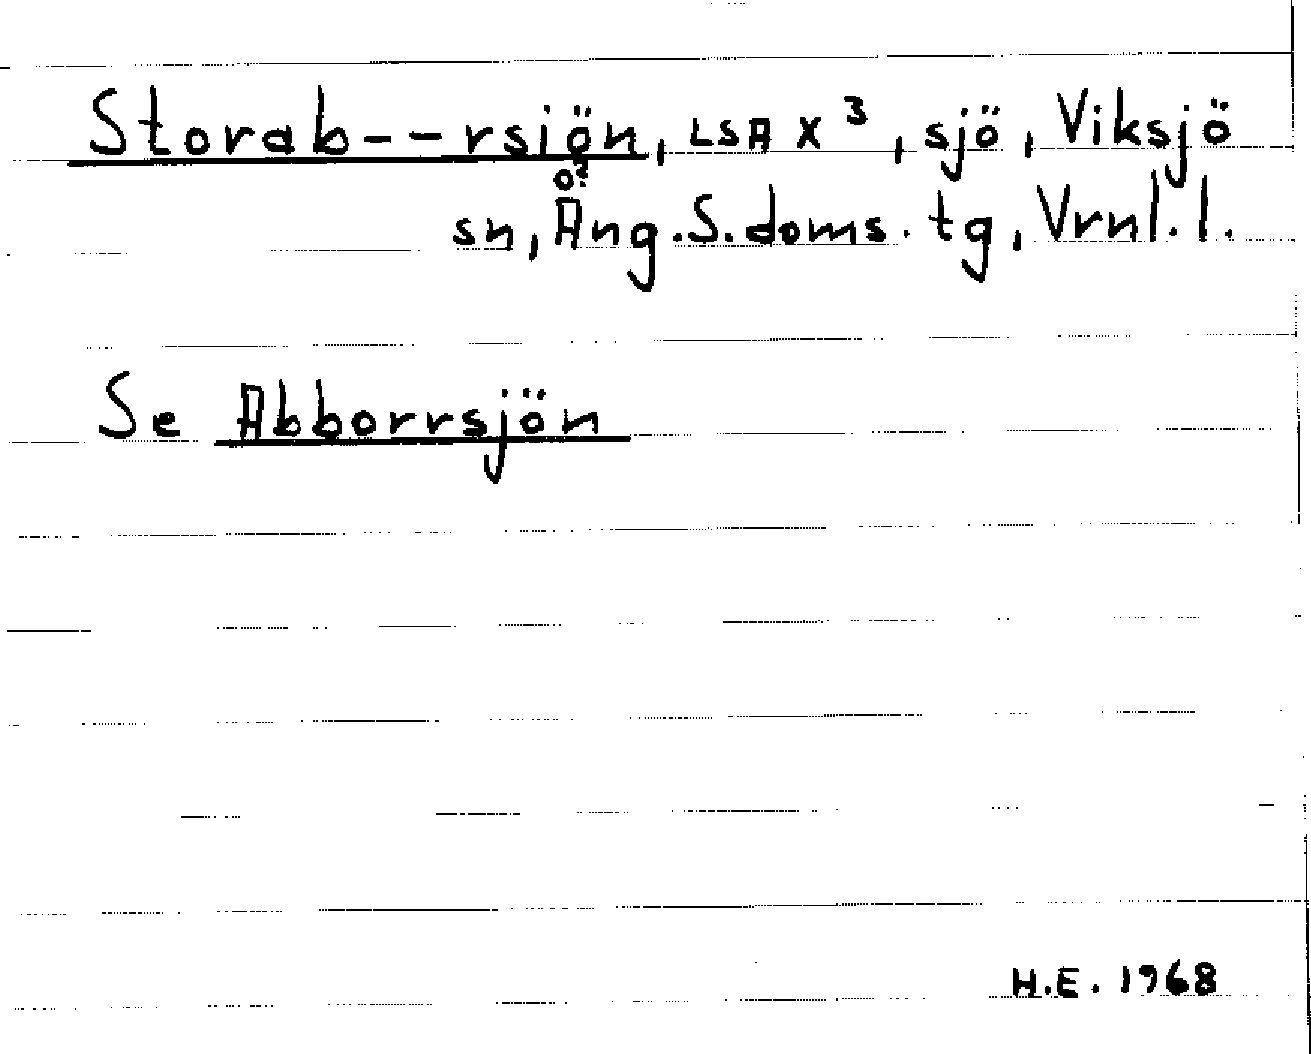 Storab--rsiön, LSA X³, sjö, Viksjö
o?
sn, Äng.S.doms.tg, Vrnl.l.
Se Abborrsjön
H.E. 1968